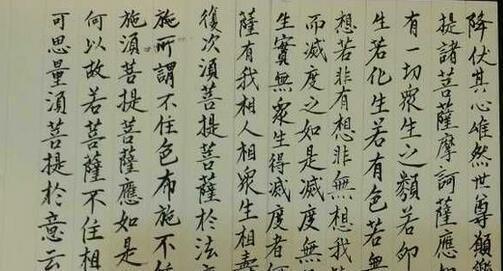 降伏其心唯然世尊願樂
提諸菩薩摩訶薩應如
有一切眾生之類若卵
生若化生若有色若無
想若非有想非無想我
而滅度之如是滅度無
生實無眾生得滅度者何
薩有我相人相眾生相壽
復次須菩提菩薩於法
施所謂不住色布施不住
施須菩提菩薩應如是
何以故若菩薩不住相
可思量須菩提於意云